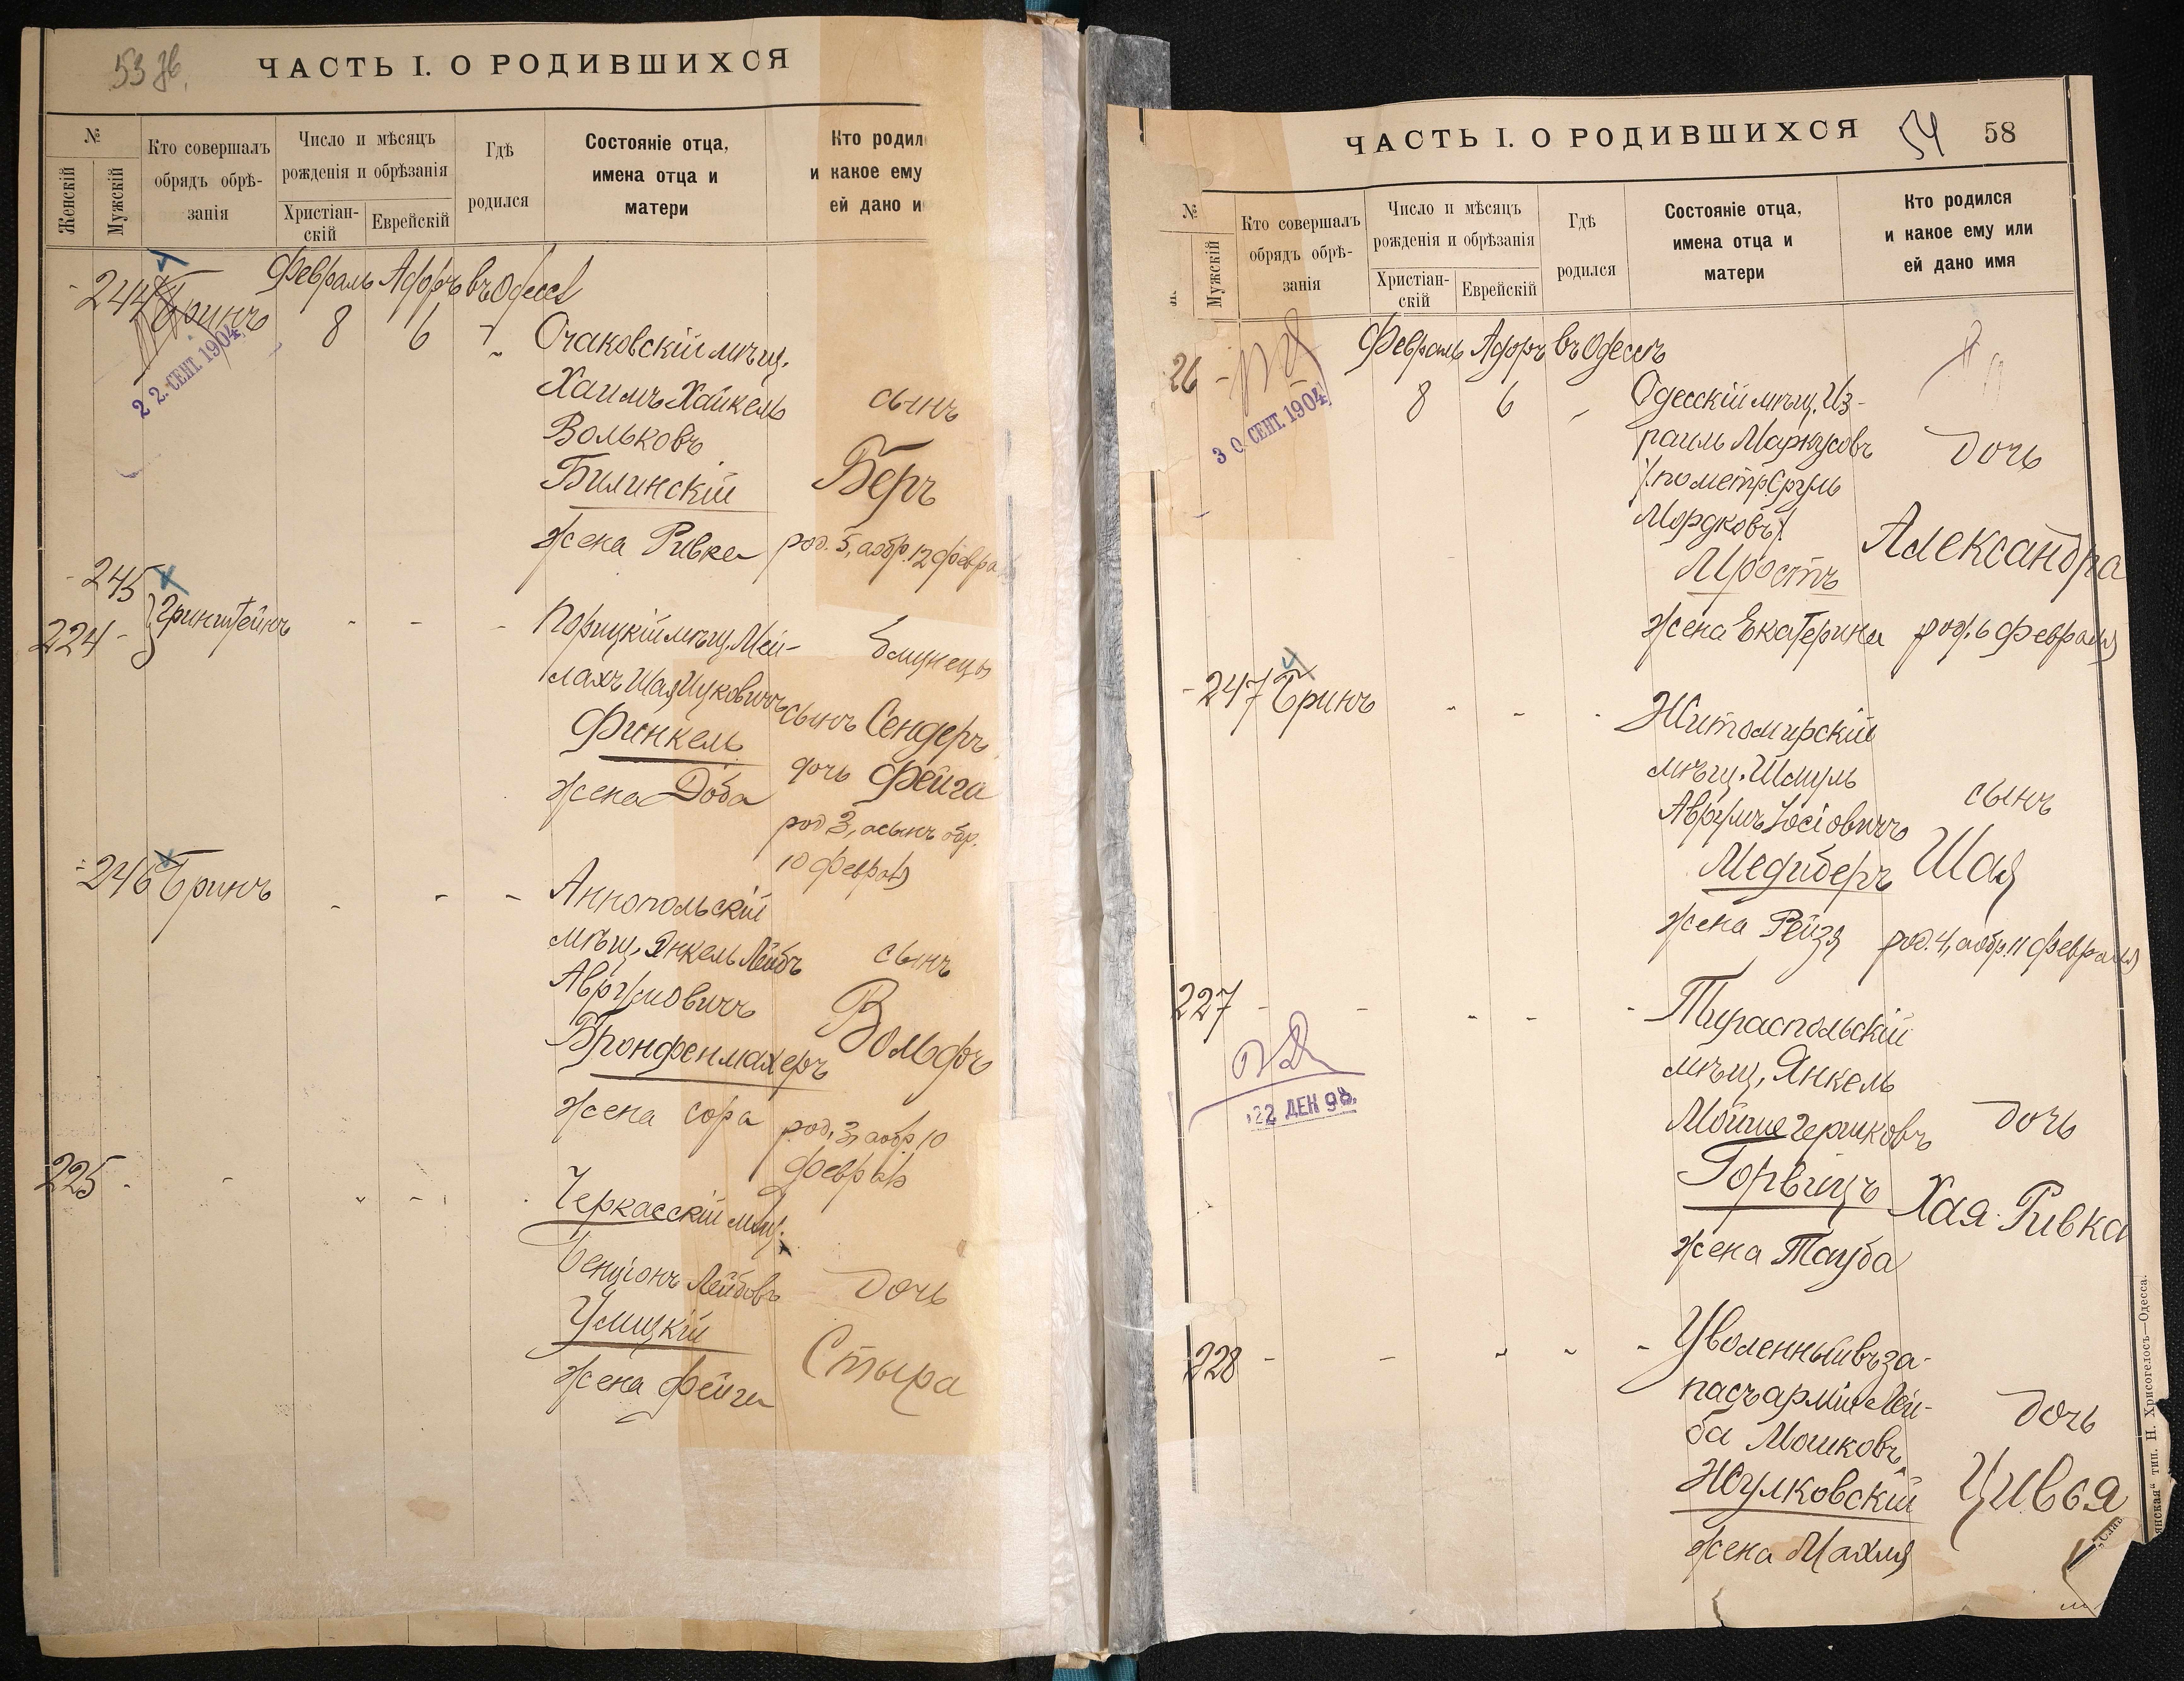 53 об.
ЧАСТЬ I. О РОДИВШИХСЯ
№
Женскій
Мужскій
Кто совершалъ
обрядъ обрѣ-
занія
Число и мѣсяцъ
рожденія и обрѣзанія
Христіан-
скій
Еврейскій
Гдѣ
родился
Состояніе отца,
имена отца и
матери
Кто родил
и какое ему
ей дано и
244 Бринъ
Февраль Адоръ въ Одессѣ
8 6
22. СЕНТ. 1904
Очаковскій мѣщ.
Хаимъ Хайкель
Вольковъ
Билинскій
жена Ривка
сынъ
Беръ
род. 5, а обр. 12 февра
245
224
Гринштейнъ
Порицкій мѣщ. Мей-
лахъ Шая Ицковичъ
Финкель
жена Доба
близнецы
сынъ Сендеръ
дочь Фейга
род 3, а сынъ обр.
10 февраля
246 Бринъ
Аннопольскій
мѣщ. Янкель Лейбъ
Аврумовичъ
Бронфенмахеръ
жена Сора
сынъ
Вольфъ
род. 3, а обр 10
февраля
225
Черкасскій мѣщ.
Бенціонъ Лейбовъ
Улицкій
жена Фейга
дочь
Стыра
ЧАСТЬ I. О РОДИВШИХСЯ
54
58
№
Мужскій
Кто совершалъ
обрядъ обрѣ-
занія
Число и мѣсяцъ
рожденія и обрѣзанія
Христіан-
скій
Еврейскій
Гдѣ
родился
Состояніе отца,
имена отца и
матери
Кто родился
и какое ему или
ей дано имя
26
Февраль Адоръ въ Одессѣ
8 6
30. СЕНТ. 1904
Одесскій мѣщ. Из-
раиль Маркусовъ
/по метр. Сруль
Мордковъ/
Мростъ
жена Екатерина
дочь
Александра
род. 6 февраля
247 Бринъ
Житомирскій
мѣщ. Шмуль
Аврумъ Іосіовичъ
Медиберъ
жена Рейзя
сынъ
Шая
род. 4, а обр. 11 февраля
227
22 ДЕК 98.
Тираспольскій
мѣщ. Янкель
Мойше Гершковъ
Горвицъ
жена Тауба
дочь
Хая-Ривка
228
Уволенный въ за-
пасъ арміи Лей-
ба Мошковъ
Жулковскій
жена Махля
дочь
Цивья
„Слав
янская“ тип. Н. Хрисогелосъ—Одесса.